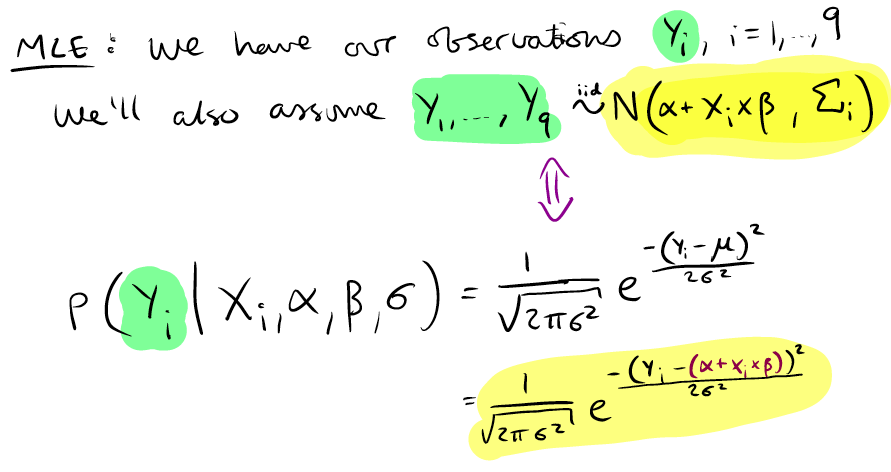 MLE : we have our observations Yᵢ, i=1,...,9
We'll also assume Y₁,...., Y₉ iid ~ N(α+Xᵢ×β , Σᵢ)
⇕
P(Yᵢ | Xᵢ,α,β,σ) = 1/√(2πσ²) e^(-(Yᵢ-μ)²/2σ²)
= 1/√(2πσ²) e^(-(Yᵢ-(α+Xᵢ×β))²/2σ²)